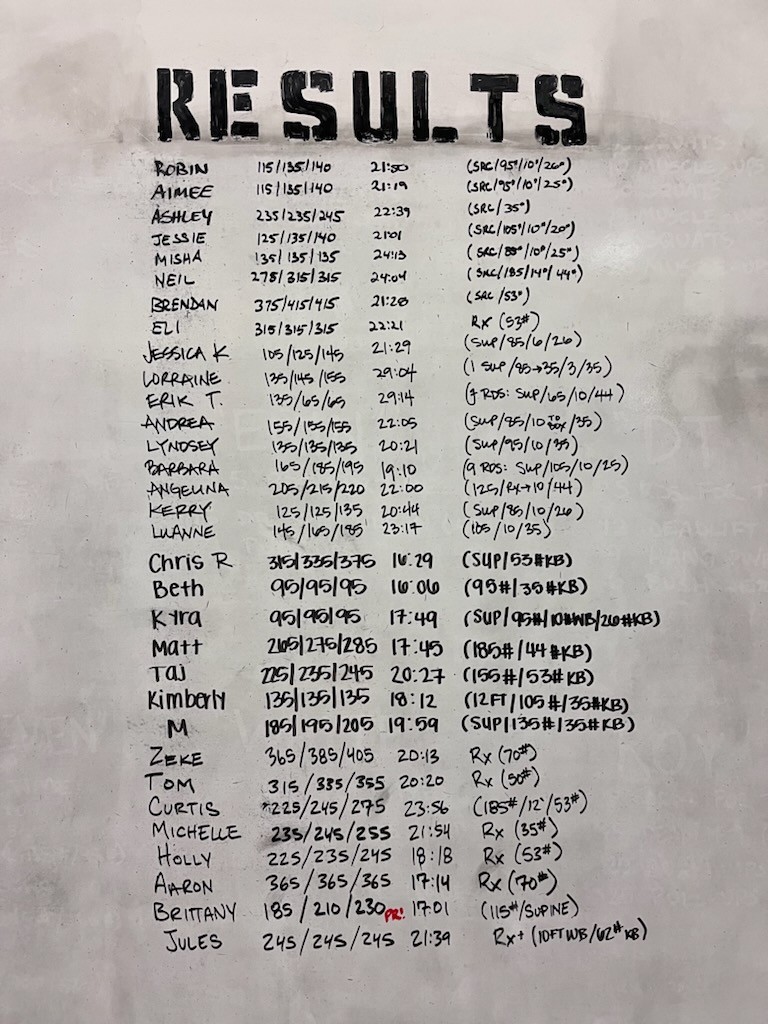 RESULTS
ROBIN 115/135/140 21:50 (SRC/95#/10#/26#)
AIMEE 115/135/140 21:19 (SRC/95#/10#/25#)
ASHLEY 235/235/245 22:39 (SRC/35#)
JESSIE 125/135/140 21:01 (SRC/105#/10#/20#)
MISHA 135/135/135 24:13 (SRC/85#/10#/25#)
NEIL 275/315/315 24:04 (SRC/185/14#/44#)
BRENDAN 375/415/415 21:28 (SRC/53#)
ELI 315/315/315 22:21 RX (53#)
JESSICA K 105/125/145 21:29 (SUP/85/6/26)
LORRAINE 135/145/155 29:04 (1 SUP/85→35/3/35)
ERIK T. 135/65/65 29:14 (7 RDS: SUP/65/10/44)
ANDREA 155/155/155 22:05 (SUP/85/10 TO BOX/35)
LYNDSEY 135/135/135 20:21 (SUP/95/10/35)
BARBARA 165/185/195 19:10 (9 RDS: SUP/105/10/25)
ANGELINA 205/215/220 22:00 (125/RX→10/44)
KERRY 125/125/135 20:44 (SUP/85/10/26)
LUANNE 145/165/185 23:17 (105/10/35)
Chris R 315/335/375 16:29 (SUP/53#KB)
Beth 95/95/95 16:06 (95#/35#KB)
Kyra 95/95/95 17:49 (SUP/95#/10#WB/26#KB)
Matt 265/275/285 17:45 (185#/44#KB)
Taj 225/235/245 20:27 (155#/53#KB)
Kimberly 135/135/135 18:12 (12FT/105#/35#KB)
M 185/195/205 19:59 (SUP/135#/35#KB)
ZEKE 365/385/405 20:13 Rx (70#)
TOM 315/335/355 20:20 Rx (50#)
CURTIS 225/245/275 23:56 (185#/12'/53#)
MICHELLE 235/245/255 21:54 Rx (35#)
HOLLY 225/235/245 18:18 Rx (53#)
AARON 365/365/365 17:14 Rx (70#)
BRITTANY 185/210/230 PR! 17:01 (115#/SUPINE)
JULES 245/245/245 21:39 Rx+ (10FT WB/62#KB)